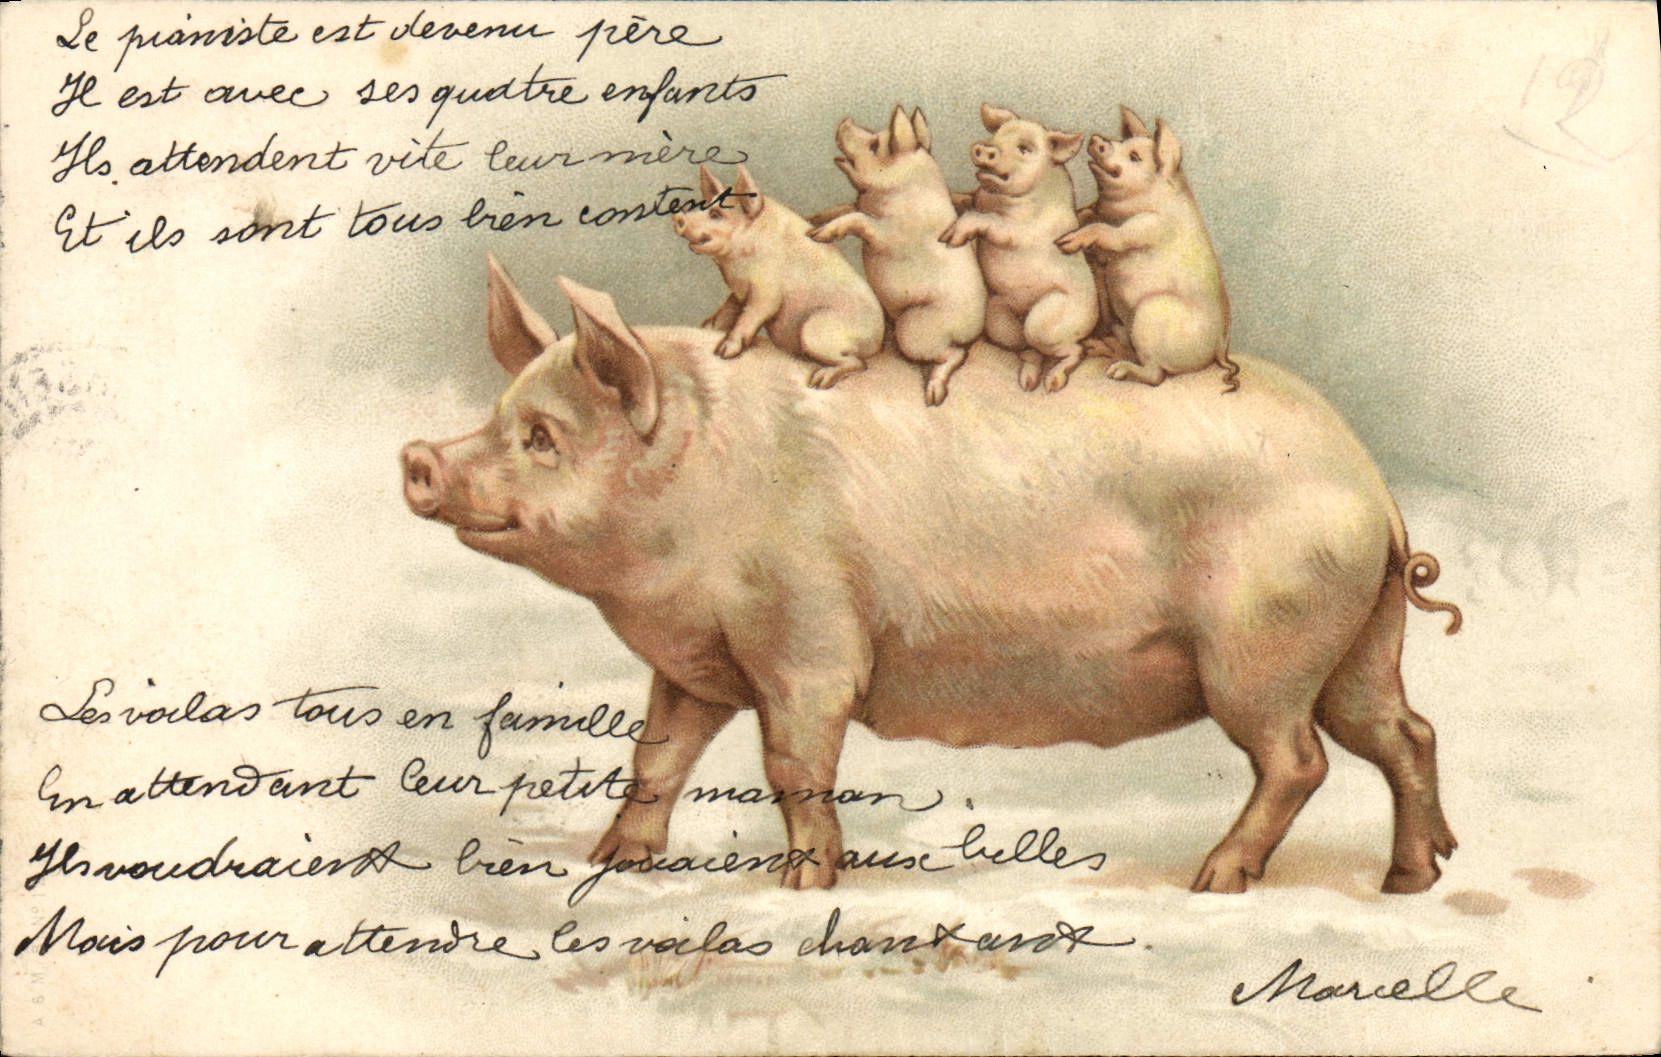 Le pianiste est devenu père
Il est avec ses quatre enfants
Ils attendent vite leur mère
Et ils sont tous bien content
Les voilas tous en famille
En attendant leur petite maman.
Ils voudraient bien jouaient aux billes
Mais pour attendre les voilas chantant.
Marcelle